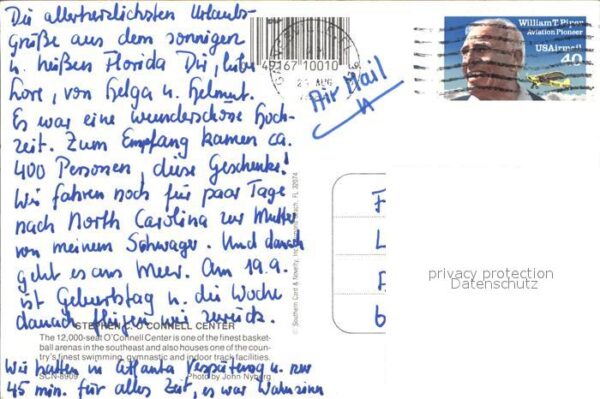 Die allerherzlichsten Urlaubs-
grüße aus dem sonnigen
u. heißen Florida Dir, liebe
Lore, von Helga u. Helmut.
Es war eine wunderschöne Hoch-
zeit. Zum Empfang kamen ca.
400 Personen, diese Geschenke!
Wir fahren noch für paar Tage
nach North Carolina zur Mutter
von meinem Schwager. Und danach
geht es ans Meer. Am 19.9.
ist Geburtstag u. die Woche
danach fliegen wir zurück.
STEPHEN C. O'CONNELL CENTER
The 12,000-seat O'Connell Center is one of the finest basket-
ball arenas in the southeast and also houses one of the coun-
try's finest swimming, gymnastic and indoor track facilities.
SCN-8909 Photo by John Nyberg
Wir hatten in Atlanta Verspätung u. nur
45 min. für alles Zeit, es war Wahnsinn
49167 10010
AUG
Air Mail
William T. Piper
Aviation Pioneer
USAirmail
40
© Southern Card & Novelty, Inc. Beach, FL 32074
F
L
6
privacy protection
Datenschutz